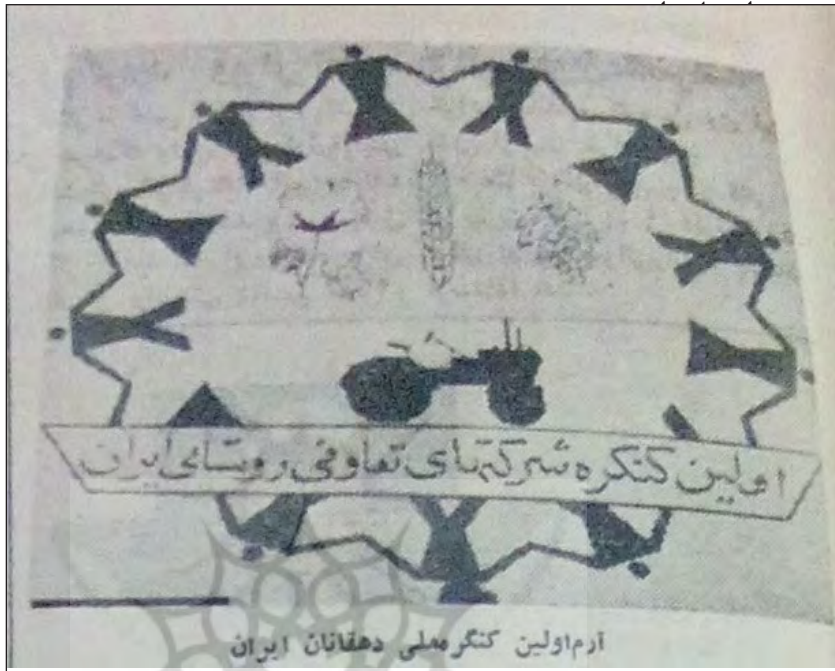 اولین کنگره شرکتهای تعاونی روستایی ایران
آرم‌اولین کنگره‌ملی دهقانان ایران